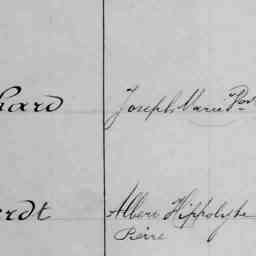 hard Joseph Marie
erdt Albert Hippolyte
Pierre